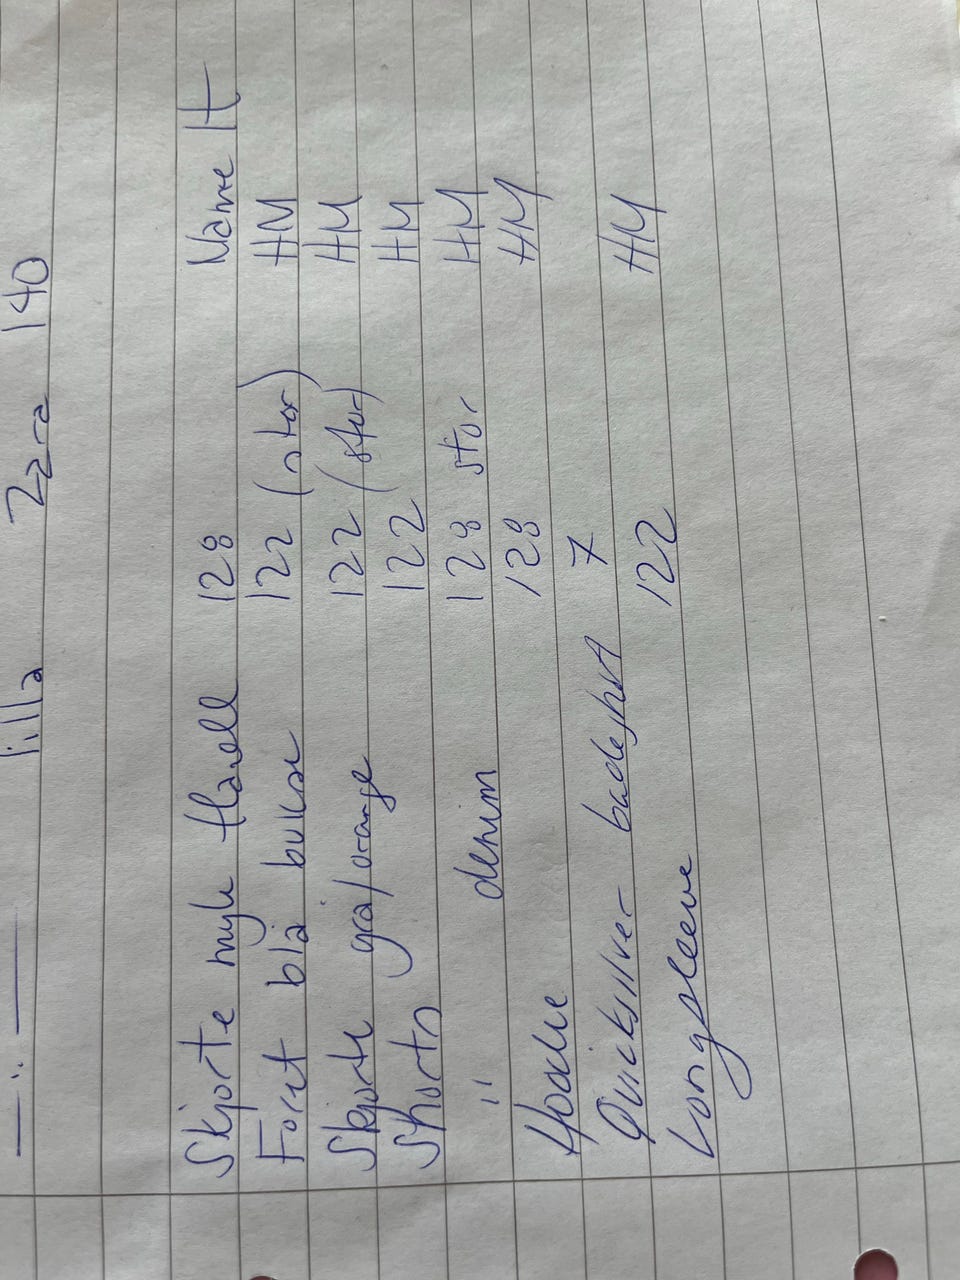 — " — lilla Zara 140
Skjorte myk flanell 128 Name It
Foret blå bukse 122 (stor) HM
Skjorte grå/orange 122 (stor) HM
Shorts 122 HM
" denim 128 stor HM
Hoodie 128 HM
Quicksilver badeshort 7
Longsleeve 122 HM